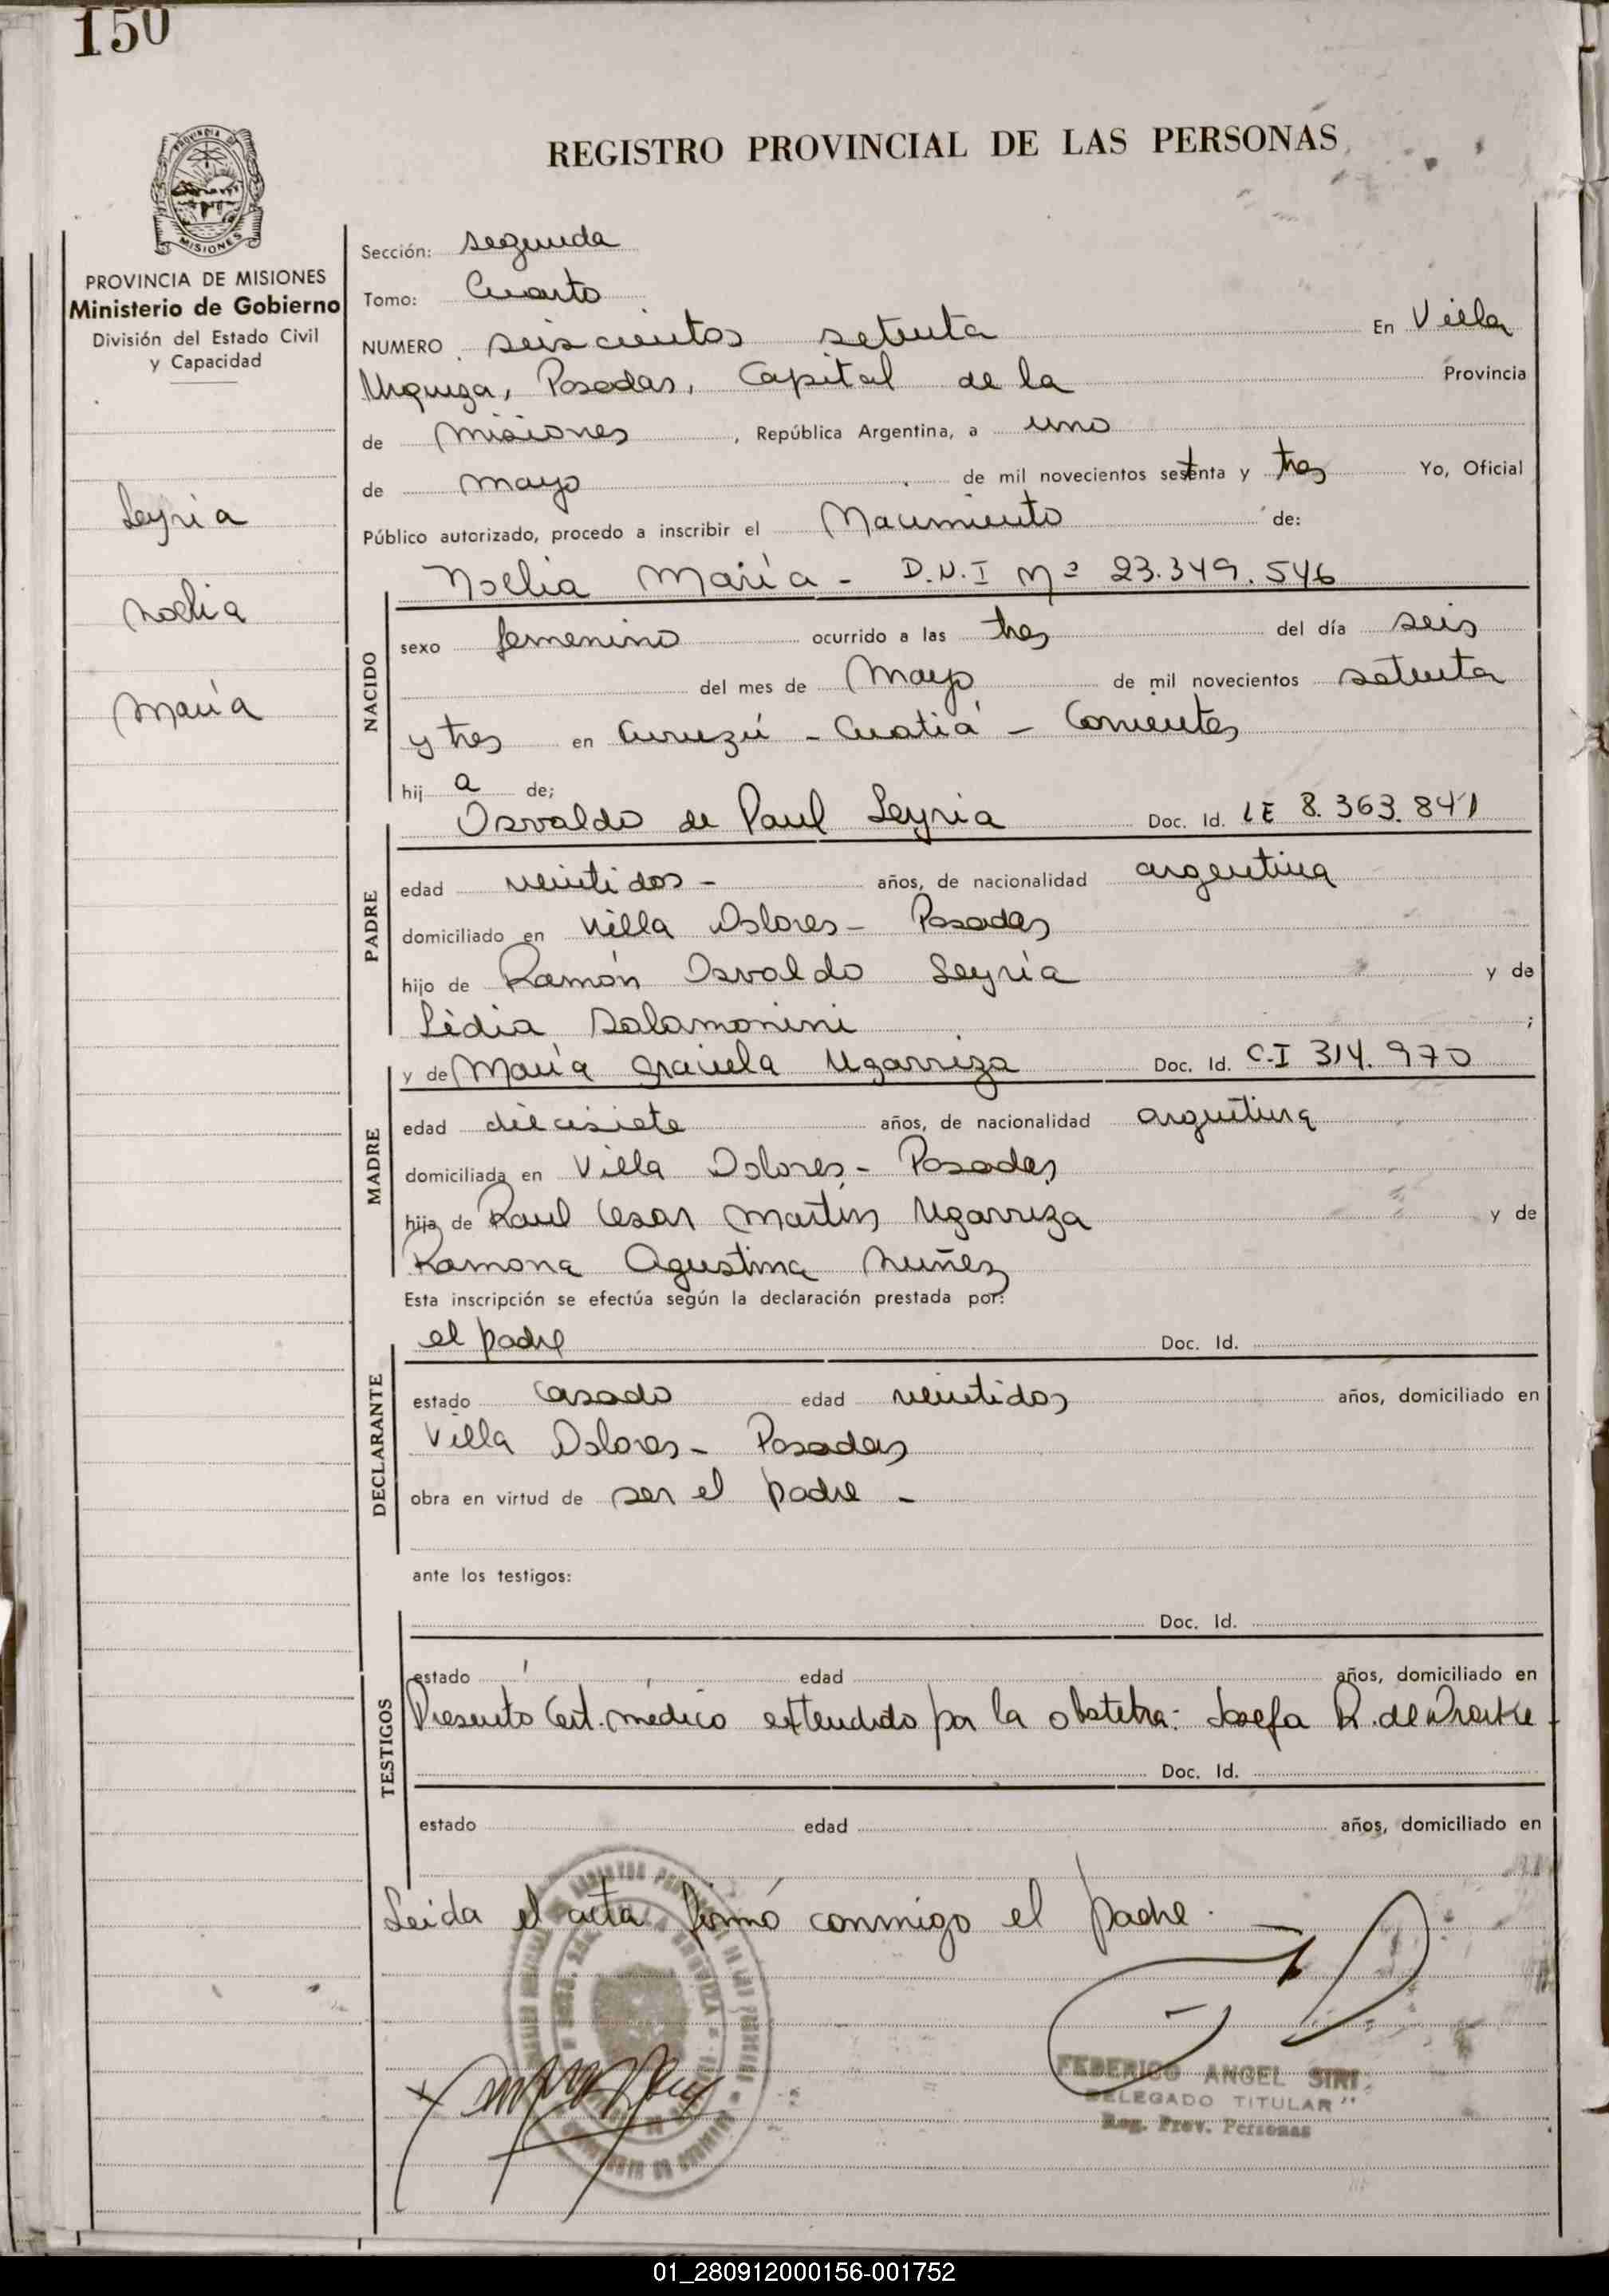 150
REGISTRO PROVINCIAL DE LAS PERSONAS
PROVINCIA DE MISIONES
PROVINCIA DE MISIONES
Ministerio de Gobierno
División del Estado Civil
y Capacidad
Leyria
Noelia
María
Sección: segunda
Tomo: Cuarto
NUMERO seiscientos setenta En Villa
Urquiza, Posadas, Capital de la Provincia
de Misiones, República Argentina, a uno
de mayo de mil novecientos setenta y tres Yo, Oficial
Público autorizado, procedo a inscribir el Nacimiento de:
Noelia María - D.N.I Nº 23.349.546
NACIDO
sexo femenino ocurrido a las tres del día seis
del mes de Mayo de mil novecientos setenta
y tres en Curuzú - Cuatiá - Corrientes
hij a de;
Osvaldo de Paul Leyria Doc. Id. LE 8.363.841
PADRE
edad veintidos - años, de nacionalidad argentina
domiciliado en Villa Dolores - Posadas
hijo de Ramón Osvaldo Leyría y de
Lidia Salamonini ;
y de María Graciela Ugarriza Doc. Id. C.I 314.970
MADRE
edad diecisiete años, de nacionalidad argentina
domiciliada en Villa Dolores - Posadas
hija de Raul Cesar Martín Ugarriza y de
Ramona Agustina Nuñez
Esta inscripción se efectúa según la declaración prestada por:
el padre Doc. Id.
DECLARANTE
estado casado edad veintidos años, domiciliado en
Villa Dolores - Posadas
obra en virtud de ser el padre -
ante los testigos:
Doc. Id.
TESTIGOS
estado edad años, domiciliado en
Presento Cert. médico extendido por la obstetra: Josefa R. de
Doc. Id.
estado edad años, domiciliado en
Leida el acta firmó conmigo el padre.
FEDERICO ANGEL SIRI
DELEGADO TITULAR
Reg. Prov. Personas
01_280912000156-001752